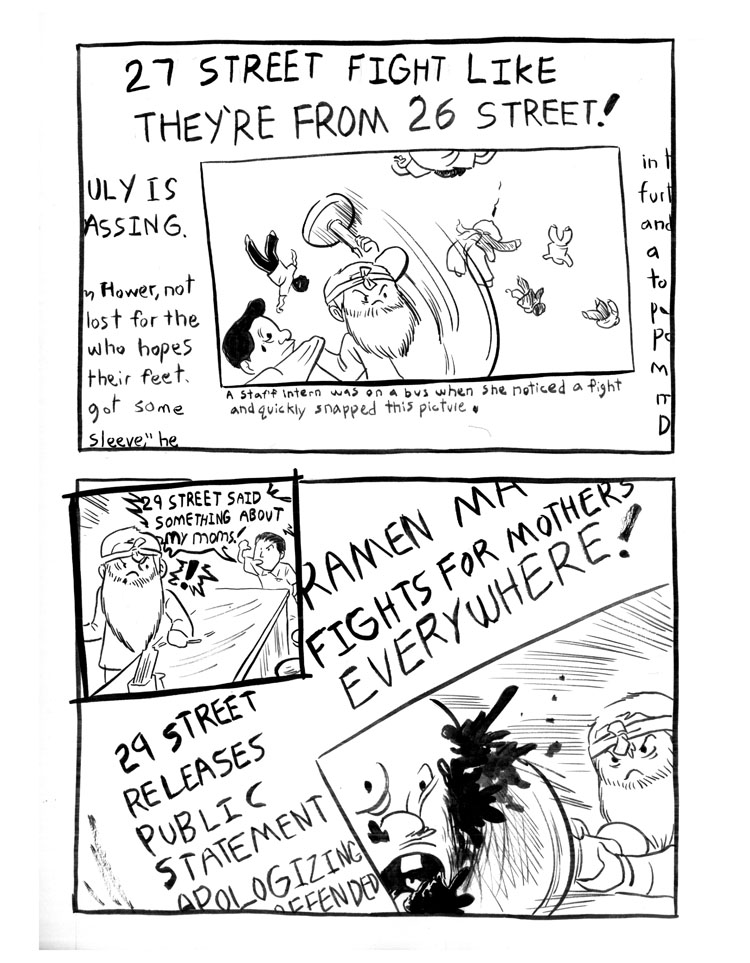 27 STREET FIGHT LIKE
THEY'RE FROM 26 STREET!
ULY IS
ASSING.
Hower, not
lost for the
who hopes
their feet.
got some
sleeve," he
in
furt
and
a
to
A staff intern was on a bus when she noticed a fight
and quickly snapped this picture.
29 STREET SAID
SOMETHING ABOUT
my moms!
!
RAMEN MA
FIGHTS FOR MOTHERS
EVERYWHERE!
29 STREET
RELEASES
PUBLIC
STATEMENT
APOLOGIZING
OFFENDED